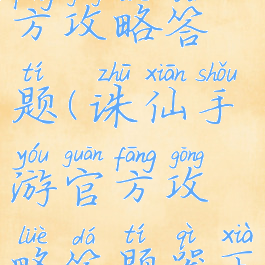 方攻略答
tí zhū xiān shǒu
题(诛仙手
yóu guān fāng gōng
游官方攻
lüè dá tí qì xià
略答题器下